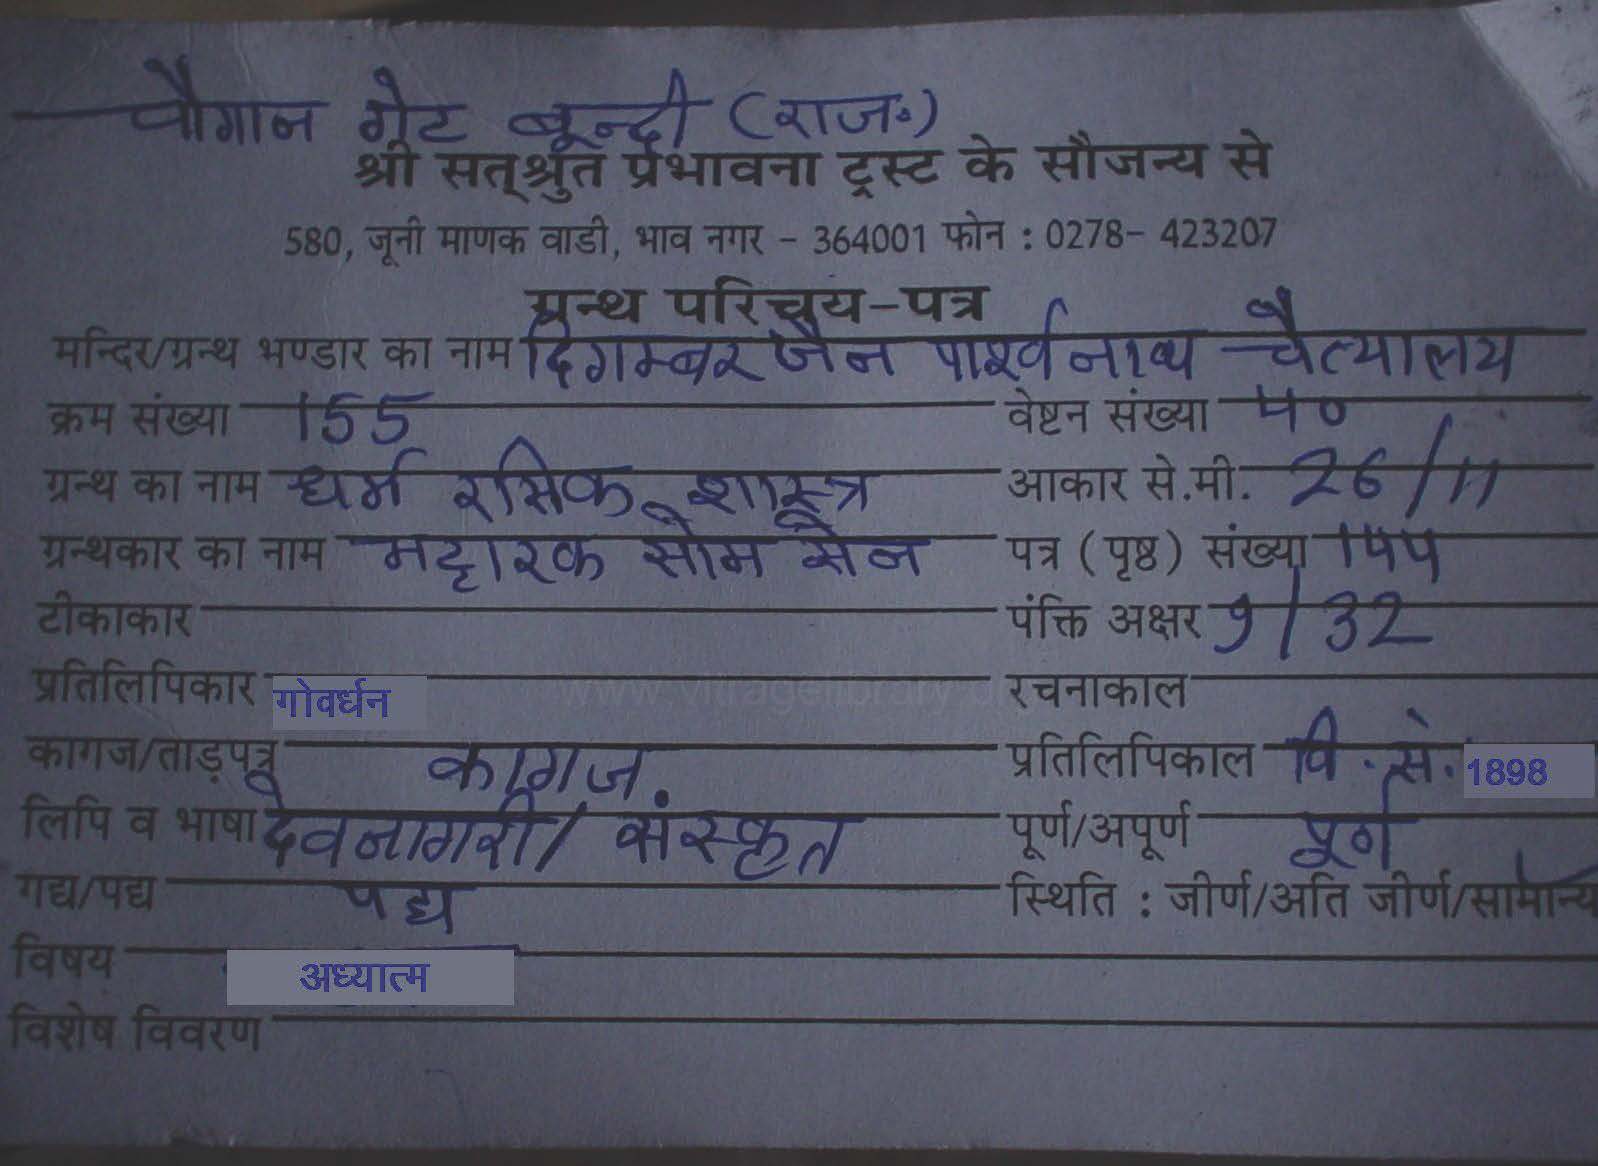 चौगान गेट बून्दी (राज॰)
श्री सत्श्रुत प्रभावना ट्रस्ट के सौजन्य से
580, जूनी माणक वाडी, भाव नगर - 364001 फोन : 0278- 423207
ग्रन्थ परिचय-पत्र
मन्दिर/ग्रन्थ भण्डार का नाम दिगम्बर जैन पार्श्वनाथ चैत्यालय
क्रम संख्या 155 वेष्टन संख्या ५०
ग्रन्थ का नाम धर्म रसिक शास्त्र आकार से.मी. 26/11
ग्रन्थकार का नाम भट्टारक सोम सेन पत्र (पृष्ठ) संख्या
टीकाकार पंक्ति अक्षर 9/32
प्रतिलिपिकार गोवर्धन रचनाकाल
कागज/ताड़पत्र कागज प्रतिलिपिकाल वि.सं. 1898
लिपि व भाषा देवनागरी/ संस्कृत पूर्ण/अपूर्ण पूर्ण
गद्य/पद्य पद्य स्थिति : जीर्ण/अति जीर्ण/सामान्य
विषय अध्यात्म
विशेष विवरण